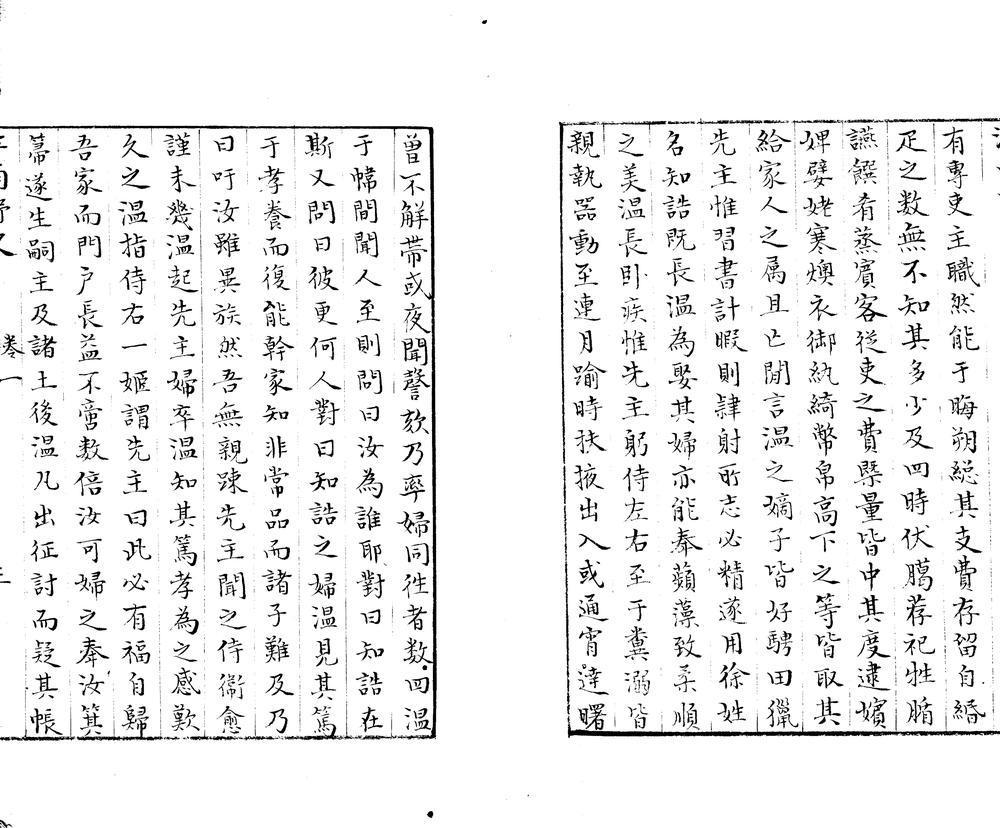 有專吏主職然能于晦朔總其支費存留自緡
疋之數無不知其多少及四時伏臈荐祀牲腯
讌饌肴蒸賓客從吏之費槩量皆中其度逮嬪
婢嬖姥寒燠衣御紈綺幣帛高下之等皆取其
給家人之属且亡閒言温之嫡子皆好騁田獵
先主惟習書計暇則肄射所志必精遂用徐姓
名知誥既長温為娶其婦亦能奉蘋藻致柔順
之美温長卧疾惟先主躬侍左右至于糞溺皆
親執器動至連月踰時扶掖出入或通宵達曙
曽不解帶或夜聞謦欬乃率婦同徃者数四温
于幃間聞人至則問曰汝為誰耶對曰知誥在
斯又問曰彼更何人對曰知誥之婦温見其篤
于孝養而復能幹家知非常品而諸子難及乃
曰吁汝雖異族然吾無親踈先主聞之侍衛愈
謹未幾温起先主婦卒温知其篤孝為之感歎
久之温指侍右一姬謂先主曰此必有福自歸
吾家而門户長益不啻数倍汝可婦之奉汝箕
箒遂生嗣主及諸土後温凡出征討而疑其帳
卷一